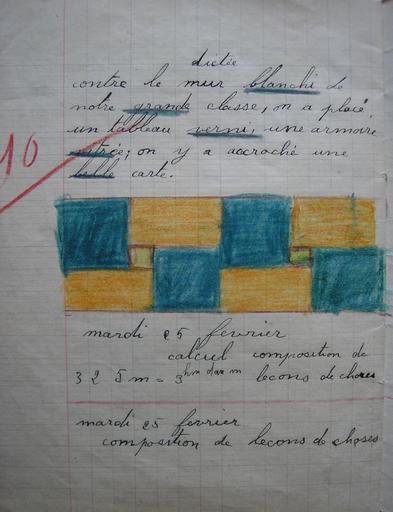 dictée
contre le mur blanchi de
notre grande classe, on a placé
un tableau verni, une armoire
vitrée; on y a accroché une
belle carte.
10
mardi 25 fevrier
calcul composition de
325m = 3 hm dam m lecons de choses
mardi 25 fevrier
composition de lecons de choses